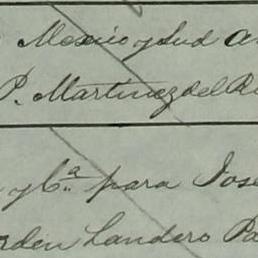 Mexico y Sud A
P. Martinez del R
y Cª para José
rden Landero Pa